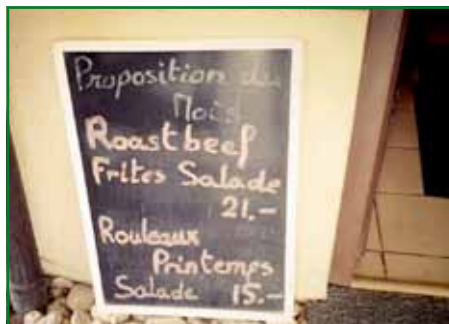 Proposition du
Mois
Roastbeef
Frites Salade
21.-
Rouleaux
Printemps
Salade 15.-